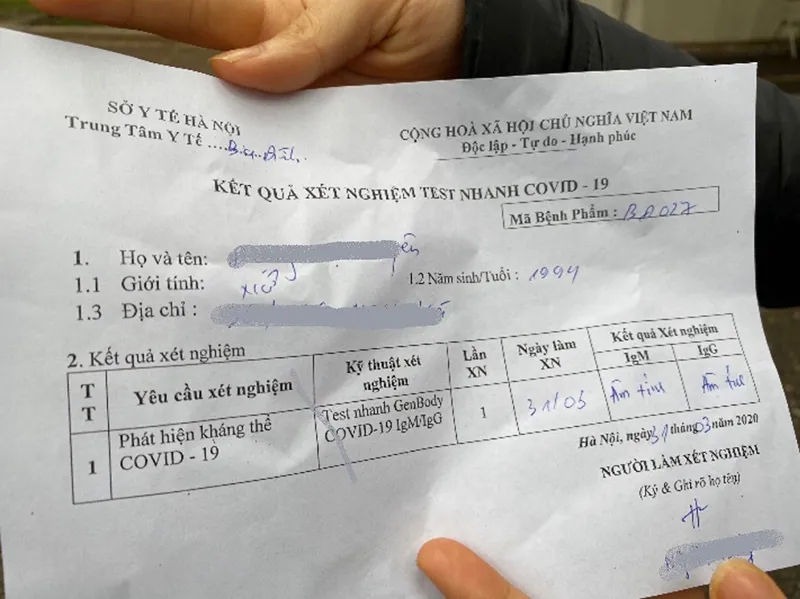 SỞ Y TẾ HÀ NỘI
Trung Tâm Y Tế ....Ba Đình.
CỘNG HOÀ XÃ HỘI CHỦ NGHĨA VIỆT NAM
Độc lập - Tự do - Hạnh phúc
KẾT QUẢ XÉT NGHIỆM TEST NHANH COVID - 19
Mã Bệnh Phẩm : BA027
1. Họ và tên:
1.1 Giới tính:
1.2 Năm sinh/Tuổi : 1994
1.3 Địa chỉ :
2. Kết quả xét nghiệm
TT Yêu cầu xét nghiệm Kỹ thuật xét nghiệm Lần XN Ngày làm XN Kết quả Xét nghiệm
IgM IgG
1 Phát hiện kháng thể COVID - 19 Test nhanh GenBody COVID-19 IgM/IgG 1 31/03 Âm tính Âm tính
Hà Nội, ngày 31 tháng 03 năm 2020
NGƯỜI LÀM XÉT NGHIỆM
(Ký & Ghi rõ họ tên)